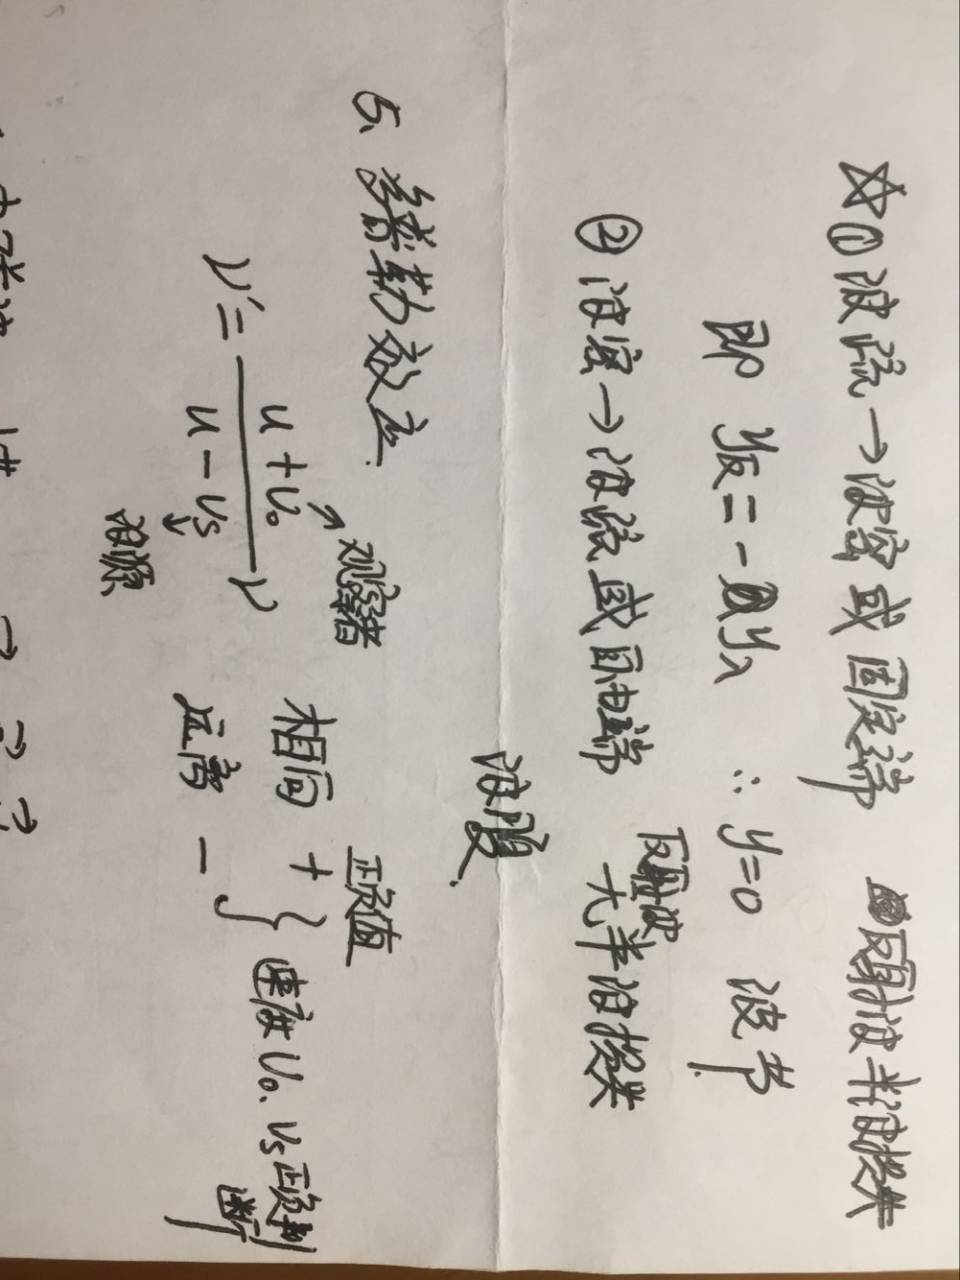 ☆①波疏→波密或固定端 反射波半波损失
即 y反=-y入 ∴y=0 波节.
②波密→波疏或自由端 反射波无半波损失
波腹.
5、多普勒效应.
ν'=\frac{u+v₀}{u-vₛ}ν
观察者
波源
正负值
相向 +
远离 -
} 速度v₀、vₛ正负判断